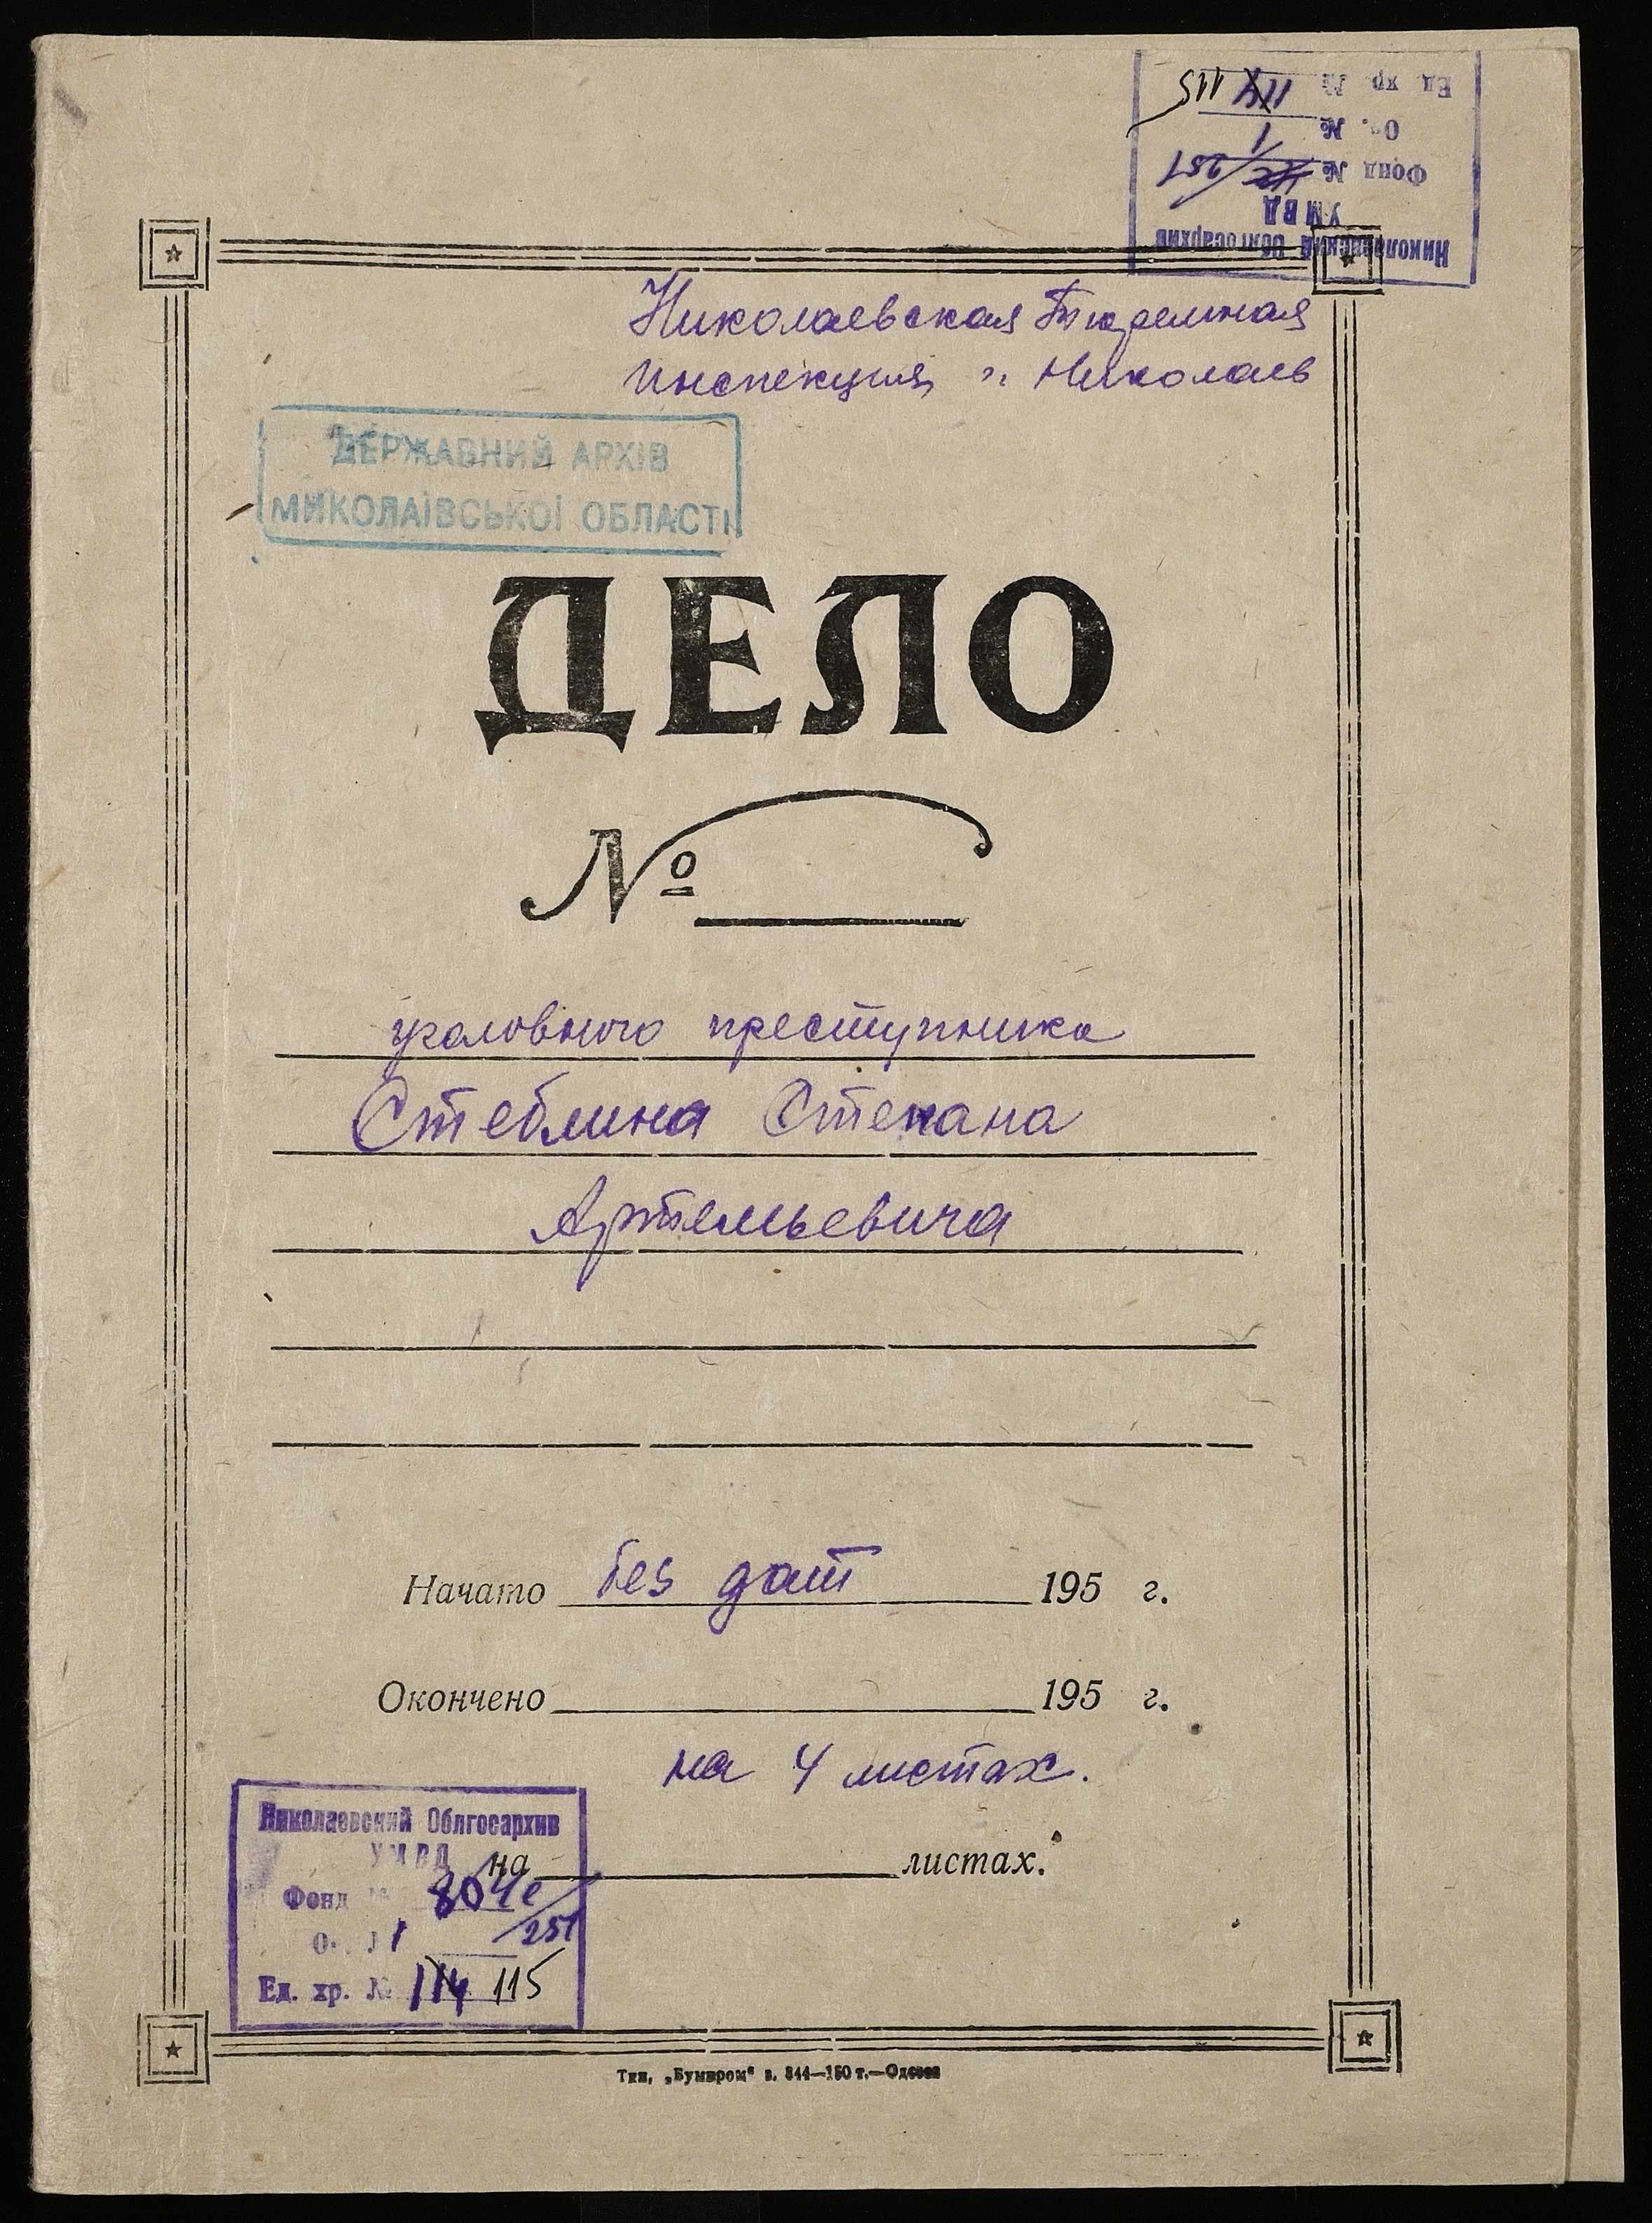 Ед. хр. № 114 115
Оп. № 1
Фонд № 251
УМВД
Николаевский Облгосархив
Николаевская Тюремная
инспекция г. Николаев
ДЕРЖАВНИЙ АРХІВ
МИКОЛАЇВСЬКОЇ ОБЛАСТІ
ДЕЛО
№
уголовного преступника
Стеблина Степана
Артемьевича
Начато без дат 195 г.
Окончено 195 г.
на 4 листах.
на листах.
Николаевский Облгосархив
УМВД
Фонд № 251
Оп. № 1
Ед. хр. № 114 115
Тип. „Бумпром" з. 844—150 т.—Одесса